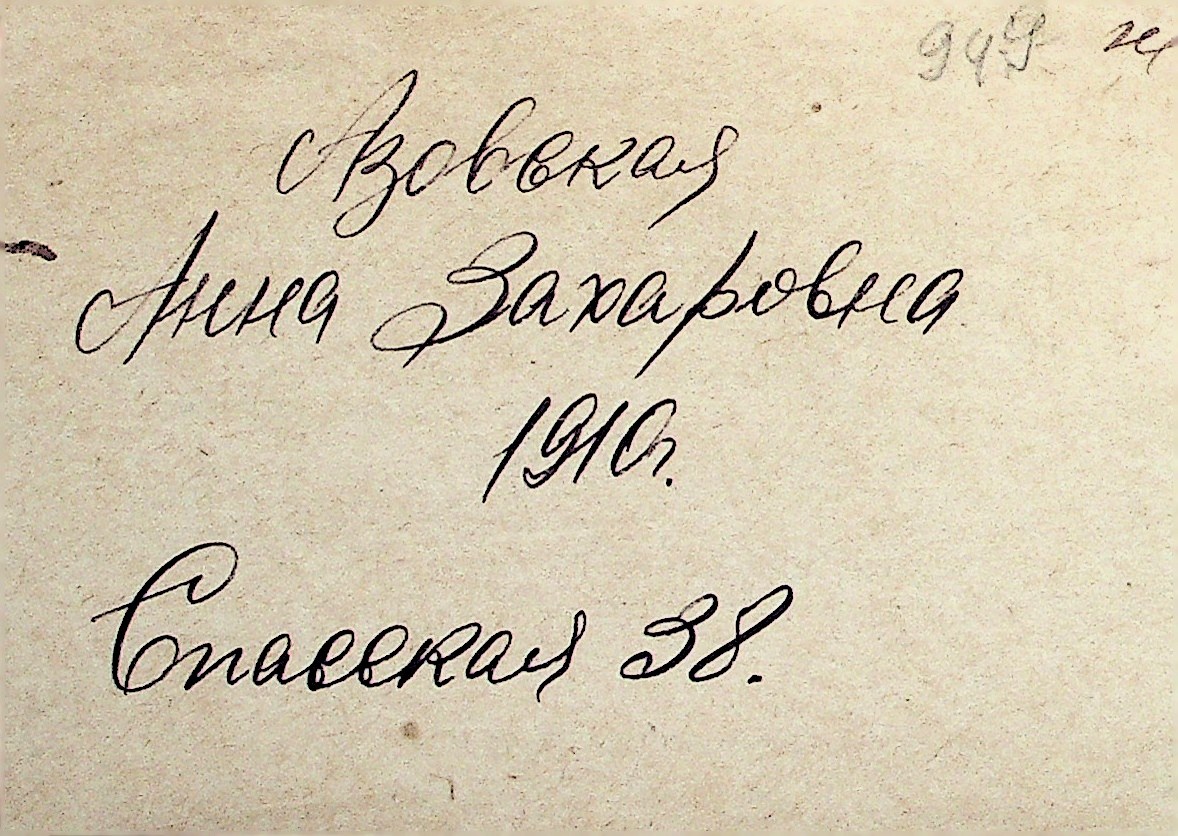 Азовская
Анна Захаровна
1910г.
Спасская 38.